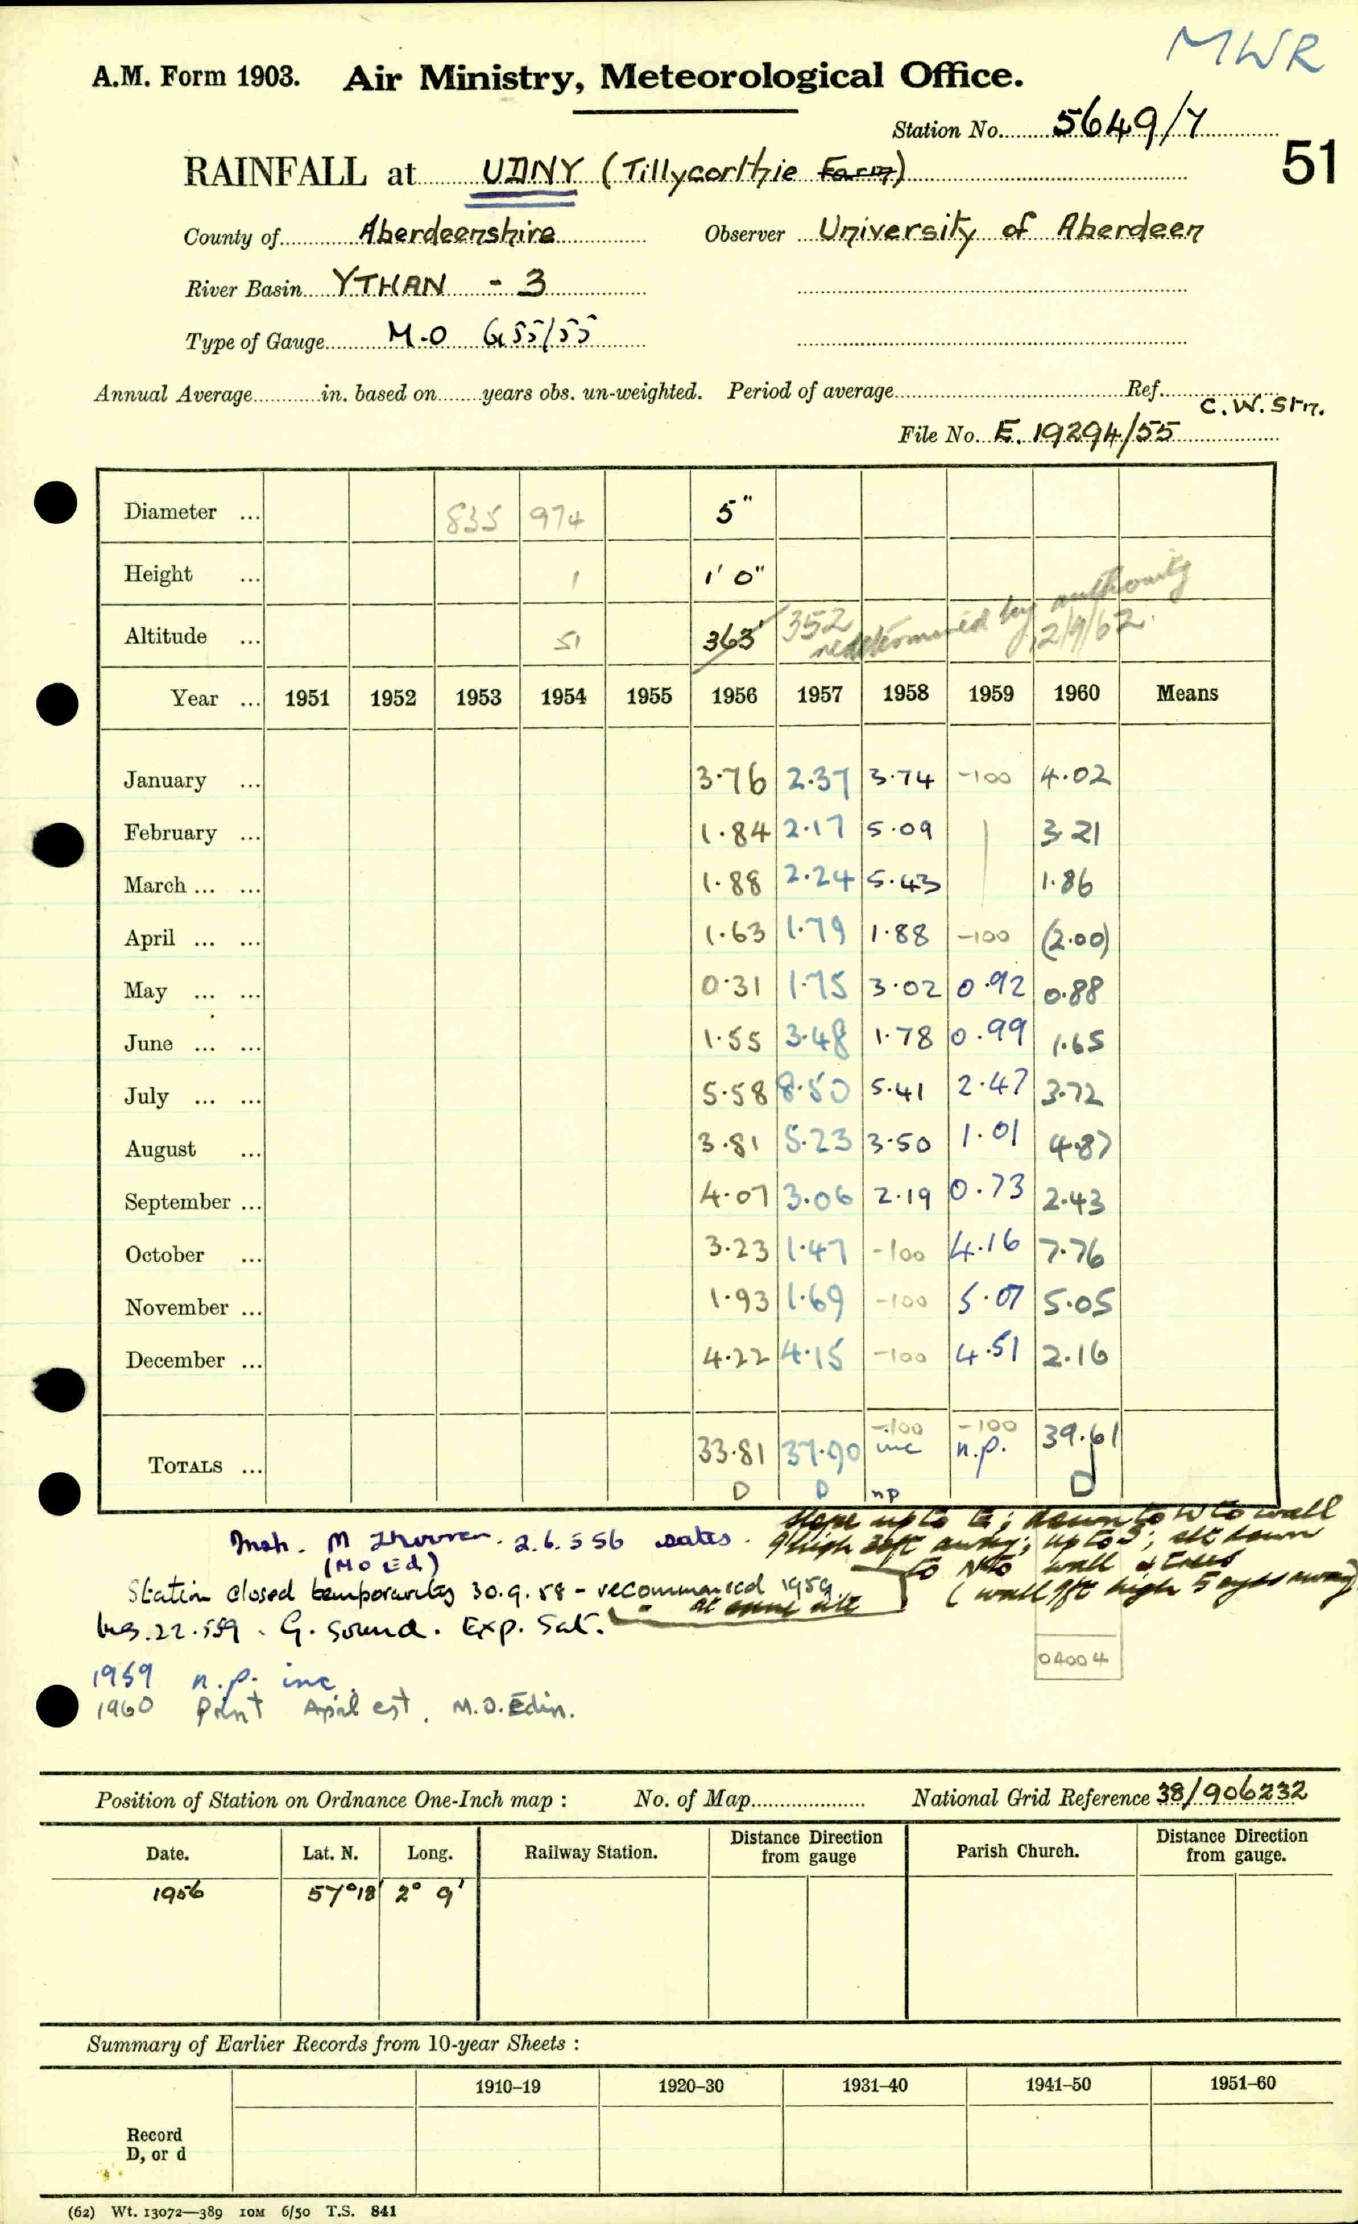 MWR
A.M. Form 1903. Air Ministry, Meteorological Office.
Station No. 5649/7
51
RAINFALL at UDNY (Tillycorthie Farm)
County of Aberdeenshire Observer University of Aberdeen
River Basin YTHAN - 3
Type of Gauge M.O G55/55
Annual Average in. based on years obs. un-weighted. Period of average Ref.
C.W.Stn.
File No. E. 19294/55
Diameter ... 835 974 5"
Height ... 1 1' 0"
Altitude ... 51 363' 352 redetermined by authority 12/9/62.
Year ... 1951 1952 1953 1954 1955 1956 1957 1958 1959 1960 Means
January ... 3.76 2.37 3.74 -100 4.02
February ... 1.84 2.17 5.09 3.21
March ... ... 1.88 2.24 5.43 1.86
April ... ... 1.63 1.79 1.88 -100 (2.00)
May ... ... 0.31 1.75 3.02 0.92 0.88
June ... ... 1.55 3.48 1.78 0.99 1.65
July ... ... 5.58 8.50 5.41 2.47 3.72
August ... 3.81 5.23 3.50 1.01 4.87
September ... 4.07 3.06 2.19 0.73 2.43
October ... 3.23 1.47 -100 4.16 7.76
November ... 1.93 1.69 -100 5.07 5.05
December ... 4.22 4.15 -100 4.51 2.16
-100 -100
TOTALS ... 33.81 37.90 inc n.p. 39.61
D D np D
slope up to E; down to W to wall
9' high 30ft away; up to S; slt down
to N to wall & trees
(wall 9ft high 5 yds away)
Insp. M 2.6.5.56 satis.
(MO Ed)
Station closed temporarily 30.9.58 - recommenced 1959
at same site
Ins. 22.5.59. G. Sound. Exp. Sat.
04004
1959 n.p. inc.
1960 Print April est. M.O. Edin.
Position of Station on Ordnance One-Inch map : No. of Map National Grid Reference 38/906232
Date. Lat. N. Long. Railway Station. Distance Direction from gauge Parish Church. Distance Direction from gauge.
1956 57°18' 2° 9'
Summary of Earlier Records from 10-year Sheets :
1910–19 1920–30 1931–40 1941–50 1951–60
Record
D, or d
(62) Wt. 13072—389 10M 6/50 T.S. 841